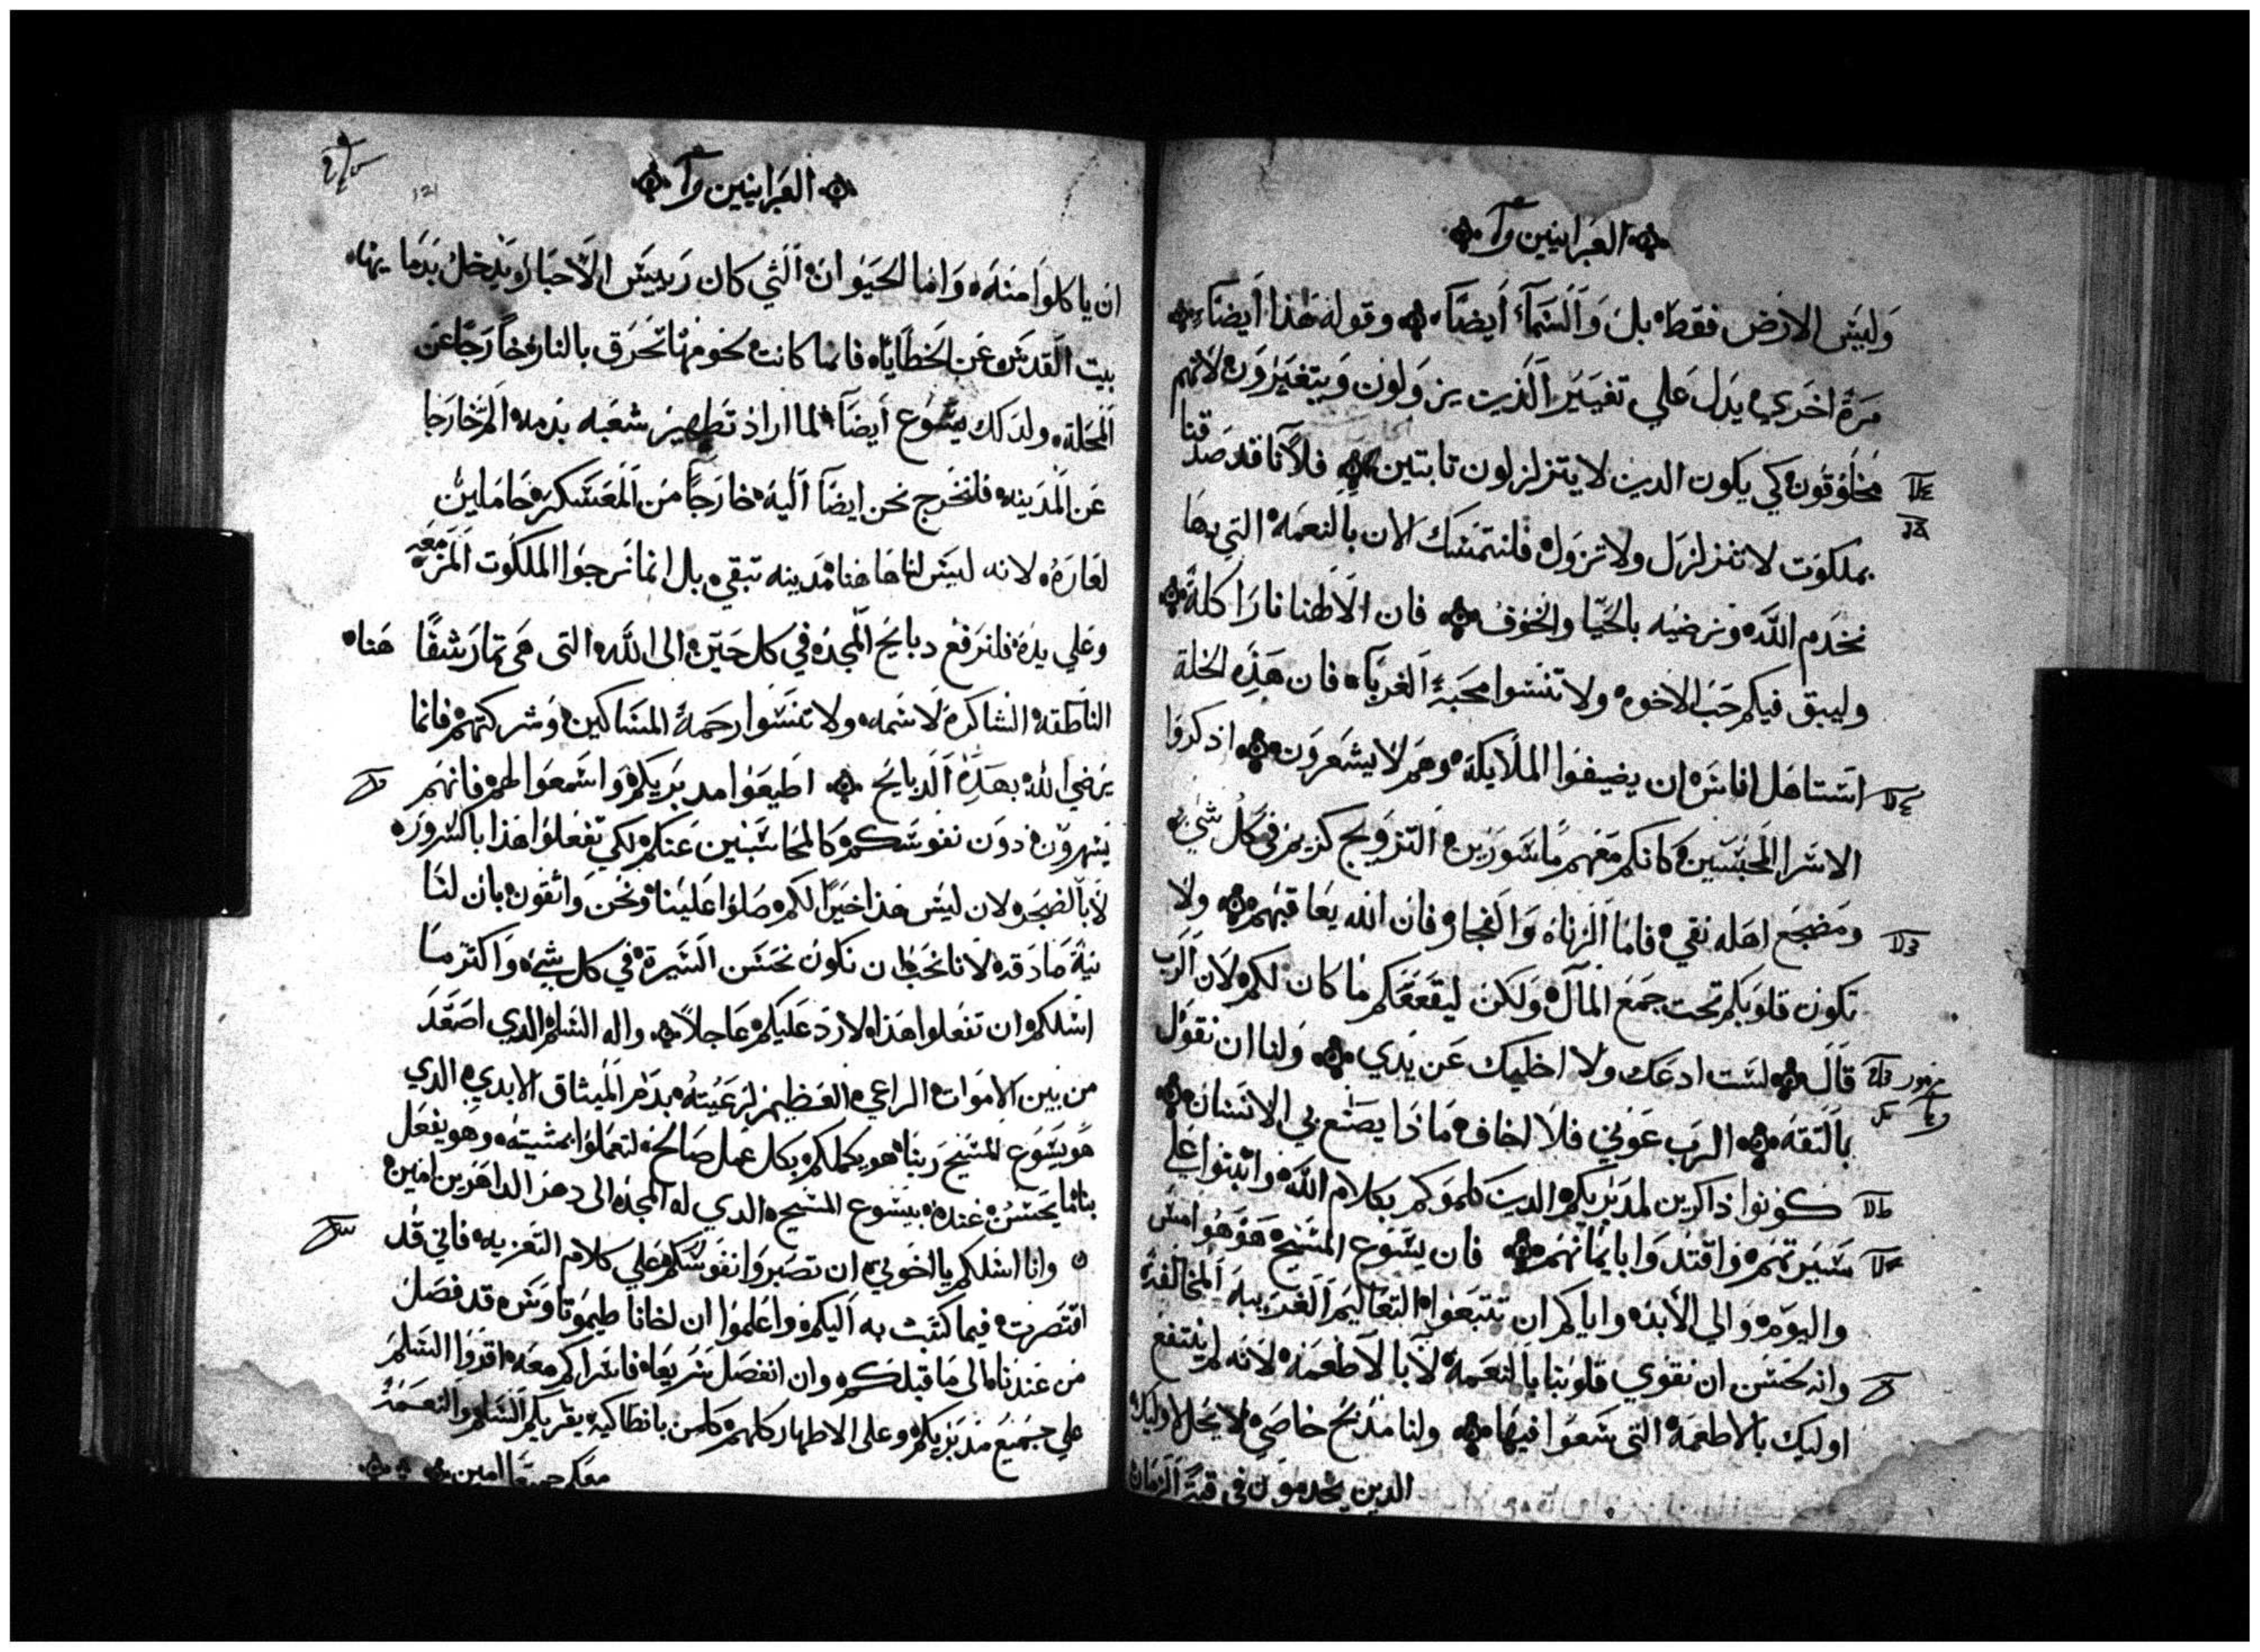 العبرانيين
وليس الارض فقط بل والسماء أيضاً وقوله هذا أيضاً
مرة اخري يدل علي تغيير الذين يزولون ويتغيرون لانهم
مخلوقون كي يكون الدين لا يتزلزلون تابتين فلانا قد صدقنا
بملكوت لا تتزلزل ولا تزول فلنتمسك الان بالنعمة التي بها
نخدم الله ونرضيه بالحيا والخوف فان الاهنا نارا كلة
وليبق فيكم حب الاخوه ولا تنسوا محبة الغربآ فان هذه الخلة
استاهل اناس ان يضيفوا الملايكة وهم لا يشعرون اذكروا
الاسرا المحبسين كانكم معهم ماسورين التزويج كريم في كل شي
ومضجع اهله نقي فاما الزناه والفجار فان الله يعاقبهم ولا
تكون قلوبكم تحت جمع المال ولكن ليقنعكم ما كان لكم لان الرب
قال لست ادعك ولا اخليك عن يدي ولنا ان نقول
بالتقة الرب عوني فلا اخاف ماذا يصنع بي الانسان
كونوا ذاكرين لمدبريكم الدين كلموكم بكلام الله واثبتوا علي
سيرتهم واقتدوا بايمانهم فان يسوع المسيح هو هو امس
واليوم والي الأبد واياكم ان تتبعوا التعاليم الغريبه المخالفة
وانه يحسن ان نقوي قلوبنا بالنعمة لا بالاطعمة لانه لم ينتفع
اوليك بالاطعمة التي سعوا فيها ولنا مذبح خاصي لا يحل لاوليك
الدين يخدمون في قبة الزمان
العبرانيين
ان ياكلوا منه واما الحيوان التي كان رييس الاحبار يدخل بدمايها
بيت القدس عن الخطايا فانما كانت لحومها تحرق بالنار خارجا عن
المحلة ولدلك يسوع أيضآ لما اراد تطهير شعبه بدمه الم خارجا
عن المدينه فلنخرج نحن ايضا اليه خارجاً من المعسكر حاملين
لعاره لانه ليس لنا هاهنا مدينه تبقي بل انما نرجوا الملكوت المزمعه
وعلي يده فلنرفع دبايح المجد في كل حين الى الله التى هى تمار شفاهنا
الناطقه الشاكرة لاسمه ولا تنسوا رحمة المساكين وشركتهم فانما
يرضي الله بهذه الدبايح اطيعوا مدبريكم واسمعوا لهم فانهم
يسهرون دون نفوسكم كالمحاسبين عنكم لكي تفعلوا هذا بالسرور
لا بالضجر لان ليس هذا خيرا لكم صلوا علينا ونحن واثقون بان لنا
نية صادقة لانا نحب ان نكون نحسن السيرة في كل شي واكثر ما
اسلكم ان تفعلوا هذا لارد عليكم عاجلاً واله السلم الدي اصعد
من بين الاموات الراعي العظيم لرعيته بدم الميثاق الابدي الدي
هو يسوع المسيح ربنا هو يكملكم بكل عمل صالح لتعملوا بمشيته وهو يفعل
بنا ما يحسن عنده بيسوع المسيح الدي له المجد الى دهر الداهرين امين
وانا اسلكم يا اخوتي ان تصبروا نفوسكم علي كلام التعزيه فاني قد
اقتصرت فيما كتبت به اليكم واعلموا ان اخانا طيموتاوس قد فصل
من عندنا الى ما قبلكم وان انفصل سريعا فاسراكم معه اقروا السلم
علي جميع مدبريكم وعلى الاطهار كلهم كلمن بانطاكية يقريكم السلم والنعمة
معكم جميعا امين